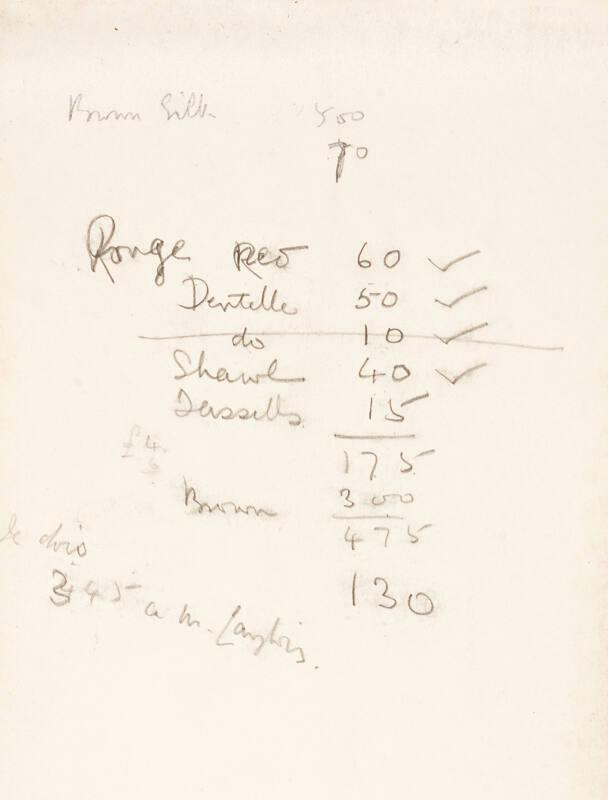 Brown Silk 500
70
Rouge RED 60 ✓
Dentelle 50 ✓
do 10 ✓
Shawl 40 ✓
Tassells 15
175
£4
Brown 300
475
Je dois
345 a M. Langlois.
130